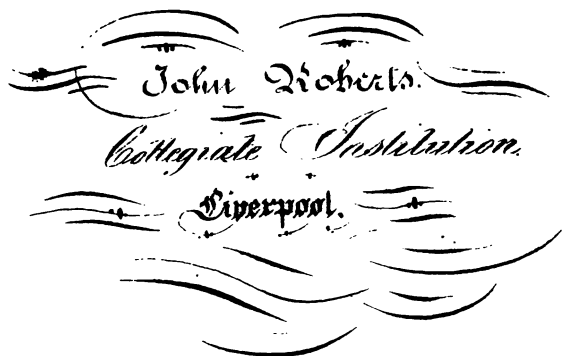 John Roberts.
Collegiate Institution.
Liverpool.